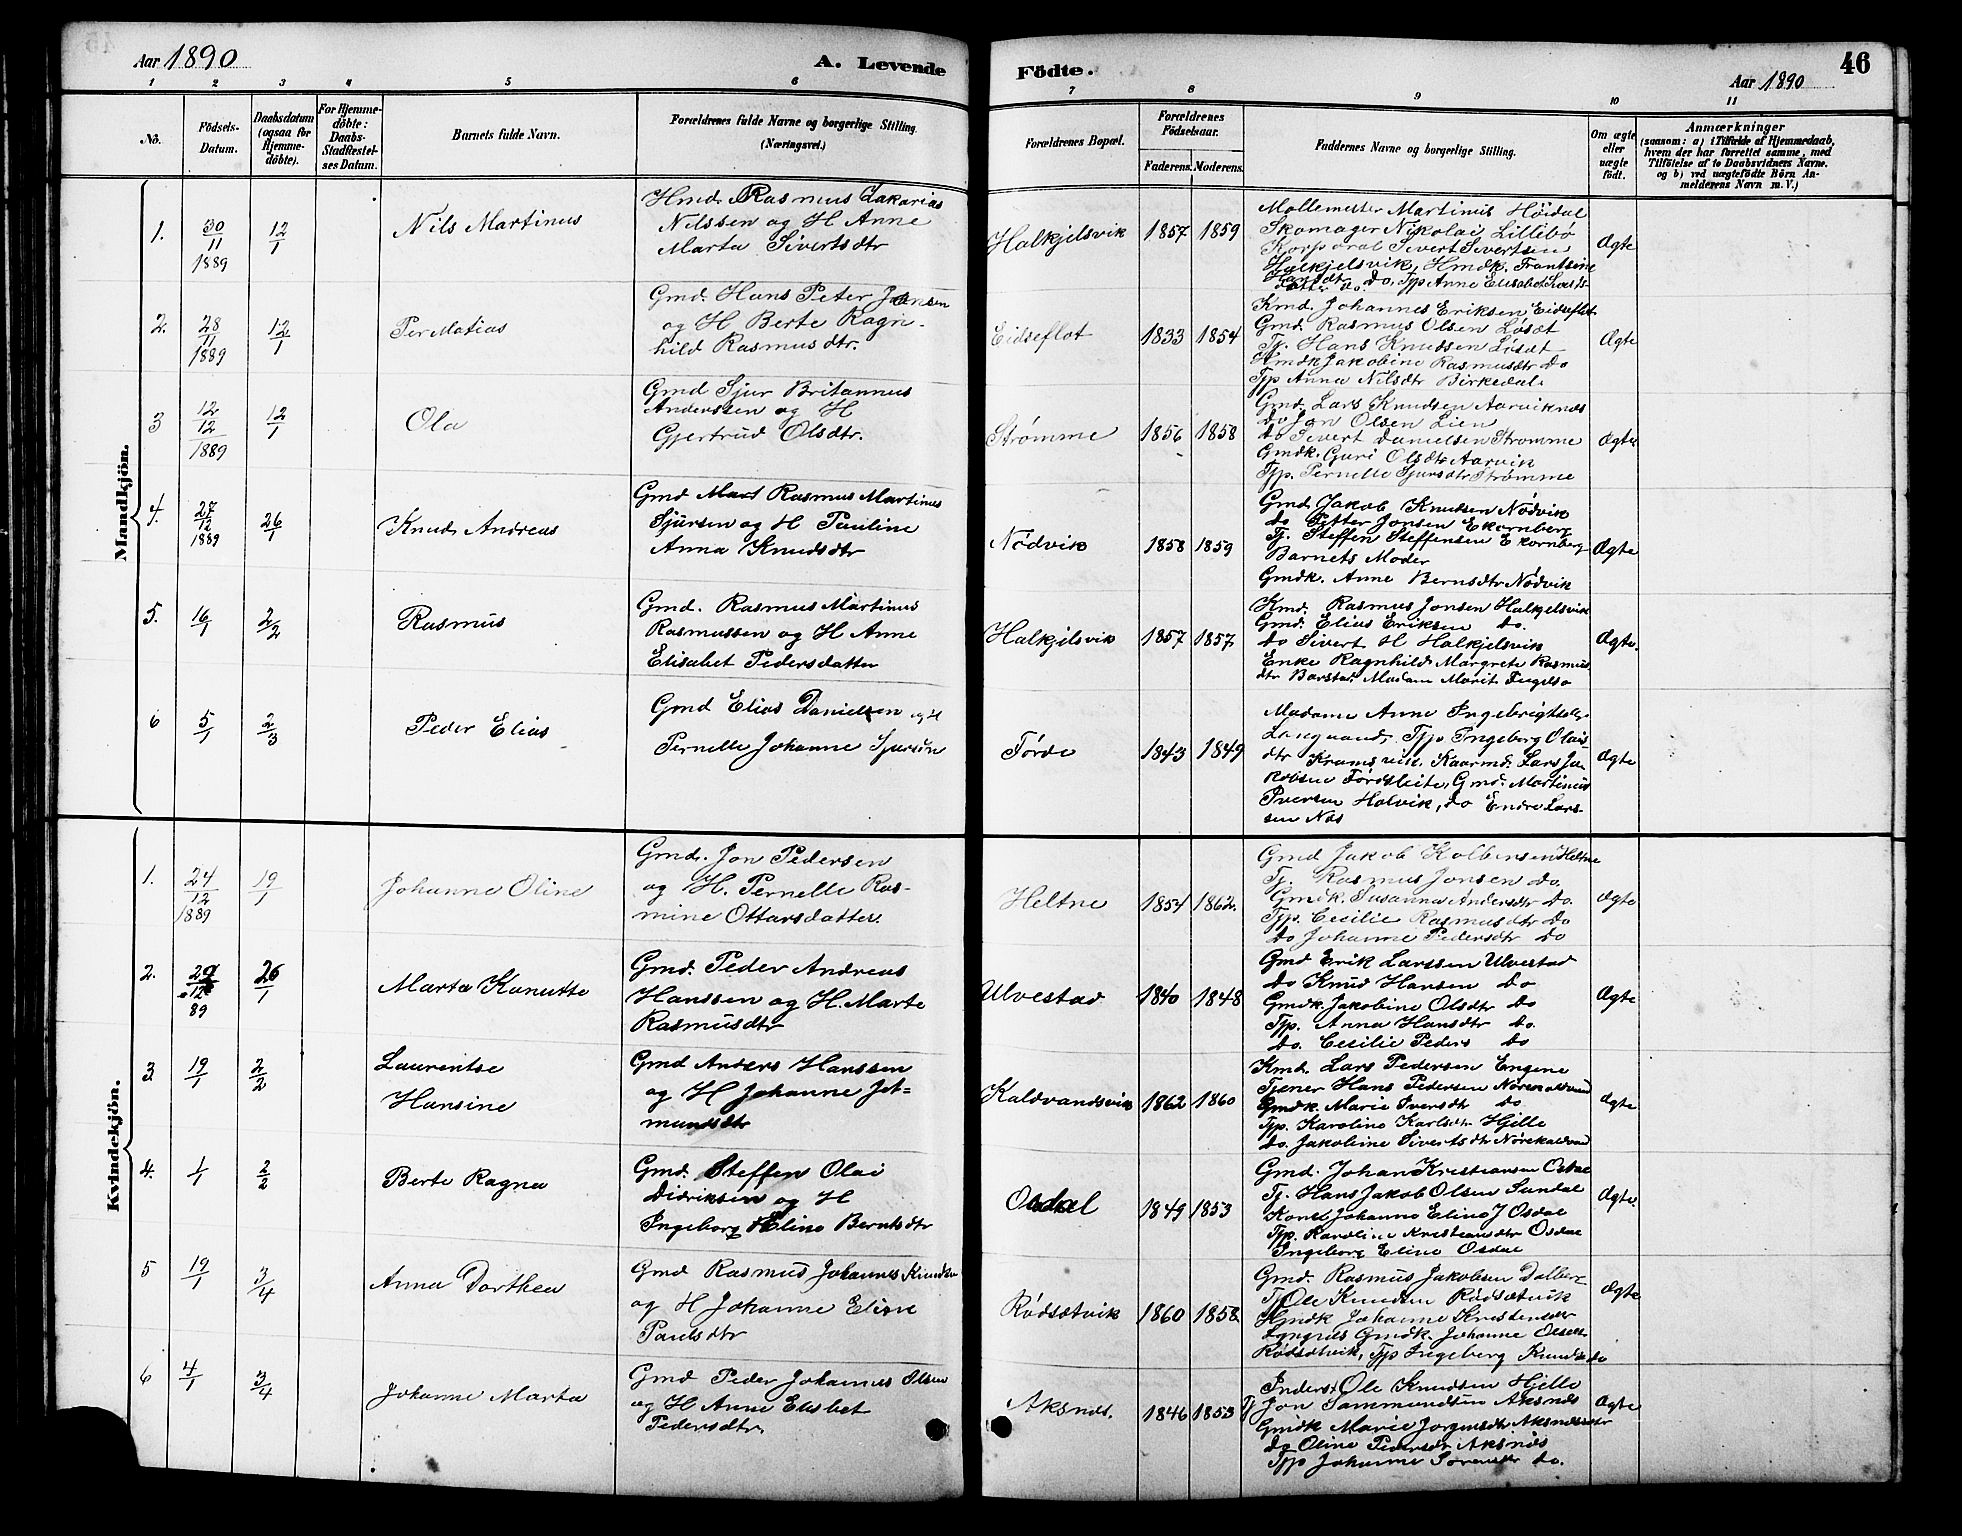 Aar 1890
A. Levende
Födte.
Aar 1890
46
1 2 3 4 5 6
7 8 9 10 11
No.
Födsels-
Datum.
Daabsdatum
(ogsaa for
Hjemme-
döbte).
For Hjemme-
döbte:
Daabs-
Stadfestel-
ses Datum.
Barnets fulde Navn.
Forældrenes fulde Navne og borgerlige Stilling.
(Næringsvei.)
Forældrenes Bopæl.
Forældrenes
Födselsaar.
Faderens. Moderens.
Faddernes Navne og borgerlige Stilling.
Om ægte
eller
uægte
födt.
Anmærkninger
(saasom: a) i Tilfælde af Hjemmedaab,
hvem der har forrettet samme, med
Tilföielse af to Daabsvidners Navne.
og b) ved uægtefödte Börn An-
melderens Navn m. V.)
Mandkjön.
1.
30/11 1889
12/1
Nils Martinus
Hmd. Rasmus Zakarias
Nilssen og H Anne
Marta Sivertsdtr
Halkjelsvik
1857 1859
Møllemester Martinus Höidal
Skomager Nikolai Lillebø
Korporal Sivert Sivertsen
Halkjelsvik, Hmdk. Frantsine
do, Tjp Anne Elisabet
Ægte
2.
28/11 1889
12/1
Per Matias
Gmd. Hans Peter Jensen
og H Berte Ragn-
hild Rasmusdtr.
Eidseflot
1833 1854
Kmd. Johannes Eriksen Eidseflot
Gmd. Rasmus Olsen Løsæt
Tj. Hans Knudsen Løsæt
Hmdk Jakobine Rasmusdtr do
Tjp Anna Nilsdtr Birkedal.
Ægte
3
12/12 1889
12/1
Ola
Gmd Sjur Britannus
Anderssen og H
Gjertrud Olsdtr.
Strømme
1856 1858
Gmd. Lars Knudsen Aarviknes
do Jon Olsen Lien
do Sivert Danielsen Strømme
Gmdk. Guri Olsdtr Aarvik
Tjp. Pernelle Sjursdtr Strømme
Ægte
4.
27/12 1889
26/1
Knud Andreas
Gmd Rasmus Martinus
Sjursen og H Pauline
Anna Knudsdtr
Nödvik
1858 1859
Gmd Jakob Knudsen Nödvik
do Petter Jonsen Ekornberg
Tj. Steffen Steffensen Ekornberg
Barnets Moder
Gmdk. Anne Berntsdtr Nødvik
Ægte
5.
16/1
2/2
Rasmus
Gmd. Rasmus Martinus
Rasmussen og H Anne
Elisabet Pedersdatter
Halkjelsvik
1857 1857.
Kmd. Rasmus Jonsen Halkjelsvik
Gmd. Elias Eriksen do.
do Sivert H Halkjelsvik
Enke Ragnhild Margrete Rasmus
dtr Barstad. Madam Marit
Ægte.
6
5/1
2/3
Peder Elias
Gmd Elias Danielsen og H
Pernelle Johanne Sjursdtr
Førde
1843 1849
Madame Anne Ingebrigtsdtr
Tjp Ingeborg
dtr Kaarmd. Lars Ja-
kobsen Førdsleite, Gmd. Martinus
Iversen Halvik, do Endre Lars-
sen Næs
Ægte
Kvindekjön.
1.
24/12 1889
19/1
Johanne Oline
Gmd. Jon Pedersen
og H. Pernelle Ras-
mine Ottarsdatter.
Heltne
1854 1862.
Gmd Jakob Kolbensen Heltne
Tj. Rasmus Jonsen do.
Gmdk. Susanna Andersdtr do.
Tjp. Cecilie Rasmusdtr do
do Johanne Pedersdtr do
Ægte
2.
29/12 89
26/1
Marta Kanutte
Gmd. Peder Andreas
Hanssen og H. Marte
Rasmusdtr
Ulvestad
1840 1848
Gmd Erik Larssen Ulvestad
do Knud Hansen do
Gmdk. Jakobine Olsdtr do
Tjp. Anna Hansdtr do.
do. Cecilie Peders do
Ægte
3
19/1
2/2
Laurentse
Hansine
Gmd Anders Hanssen
og H Johanne Jet-
mundsdtr
Kaldvandsvik
1862 1860
Kmd. Lars Pedersen Engene
Tjener Hans Pedersen
Gmdk. Marie Iversdtr do
Tjp. Karoline Karlsdtr Hjelle
do. Jakobine Sivertsdtr Nörekaldvand
Ægte
4.
1/1
2/2
Berte Ragna
Gmd. Steffen Olai
Didriksen og H
Ingeborg Eline Berntsdtr
Osdal
1849 1853
Gmd. Johan Kristiansen Osdal
Tj. Hans Jakob Olsen Sundal
Kone Johanne Eline J Osdal
Tjp. Karoline Kristiansdtr Osdal
Ingeborg Eline Osdal
Ægte.
5
19/1
3/4
Anna Dorthea
Gmd Rasmus Johannes Knudsen
og H Johanne Eline
Paulsdtr
Rödsætvik
1860 1858
Gmd. Rasmus Jakobsen Dalberg
Tj Ole Knudsen Rødsætvik
Hmdk Johanne
Gmdk. Johanne Olsdtr
Rødsætvik, Tjp Ingeborg Knudsdtr do
Ægte
6
4/1
3/4
Johanne Marta
Gmd Peder Johannes Olsen
og H Anne Elisbet
Pedersdtr.
Aksnes.
1846 1853
Inderst Ole Knudsen Hjelle
Tj Jon Sammundsen Aksnes
Gmdk Marie Jørgensdtr Aksnes
do Oline Pedersdtr Aksnes
Tjp Johanne Sörensdtr do.
Ægte